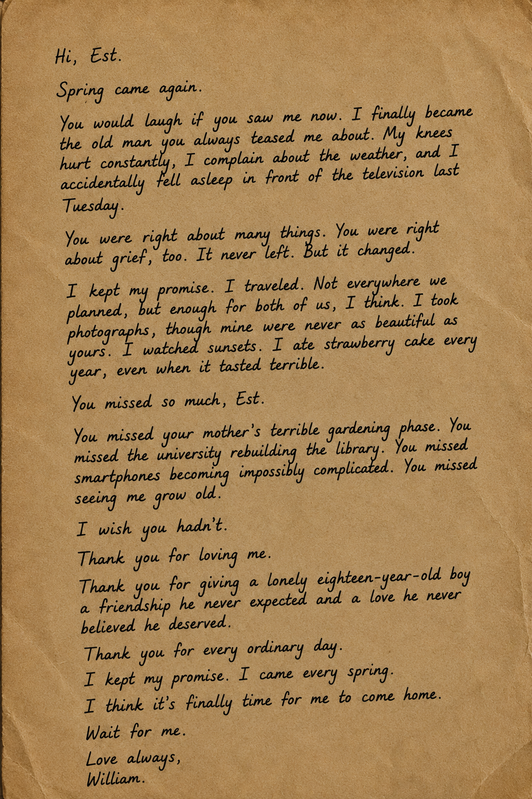 Hi, Est.
Spring came again.
You would laugh if you saw me now. I finally became
the old man you always teased me about. My knees
hurt constantly, I complain about the weather, and I
accidentally fell asleep in front of the television last
Tuesday.
You were right about many things. You were right
about grief, too. It never left. But it changed.
I kept my promise. I traveled. Not everywhere we
planned, but enough for both of us, I think. I took
photographs, though mine were never as beautiful as
yours. I watched sunsets. I ate strawberry cake every
year, even when it tasted terrible.
You missed so much, Est.
You missed your mother's terrible gardening phase. You
missed the university rebuilding the library. You missed
smartphones becoming impossibly complicated. You missed
seeing me grow old.
I wish you hadn't.
Thank you for loving me.
Thank you for giving a lonely eighteen-year-old boy
a friendship he never expected and a love he never
believed he deserved.
Thank you for every ordinary day.
I kept my promise. I came every spring.
I think it's finally time for me to come home.
Wait for me.
Love always,
William.